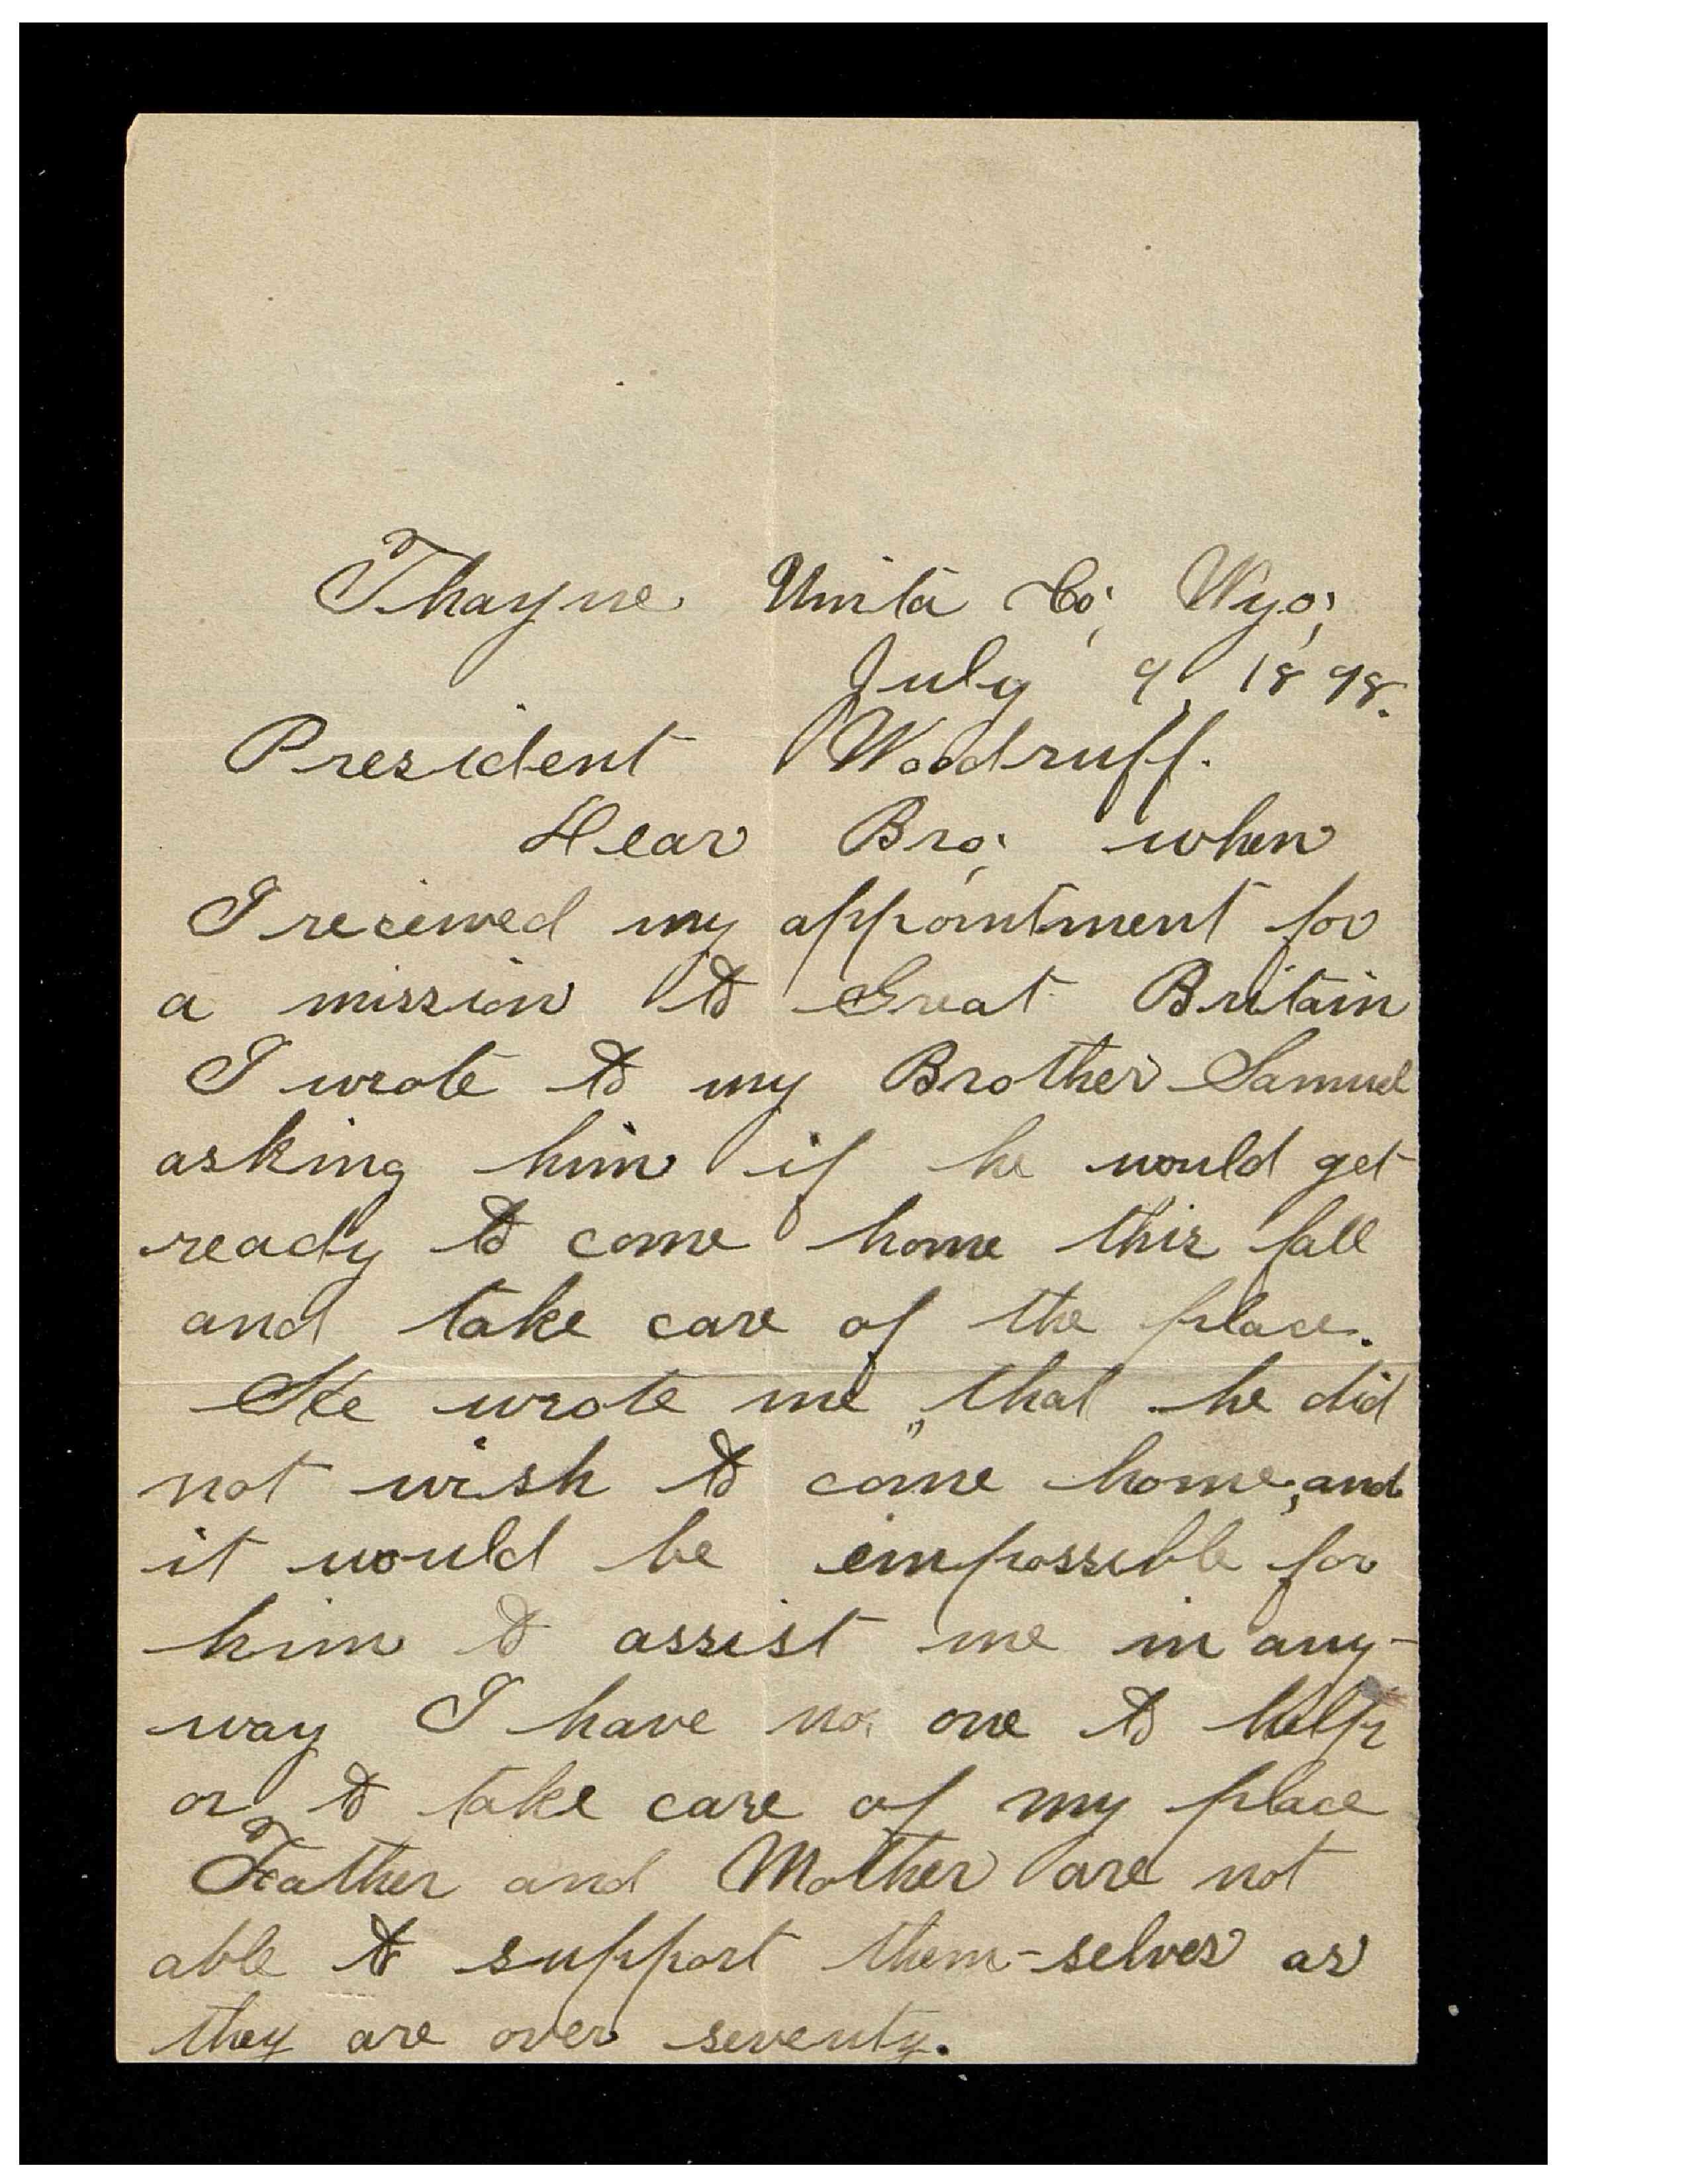 Thayne Unita Co; Wyo;
July 9, 1898.
President Woodruff.
Dear Bro; when
I recieved my appointment for
a mission to Great Britain
I wrote to my Brother Samuel
asking him if he would get
ready to come home this fall
and take care of the place.
He wrote me "that he did
not wish to come home, and
it would be impossible for
him to assist me in any-
way I have no one to help
or to take care of my place
Father and Mother are not
able to support them-selves as
they are over seventy.